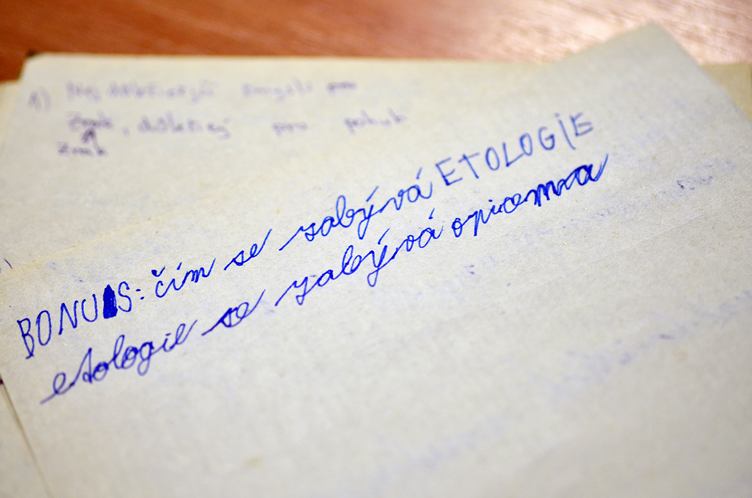 1)
Zrak, důležitý pro pohyb
Zrak
BONUS: čím se zabývá ETOLOGIE
etologie se zabývá opicema